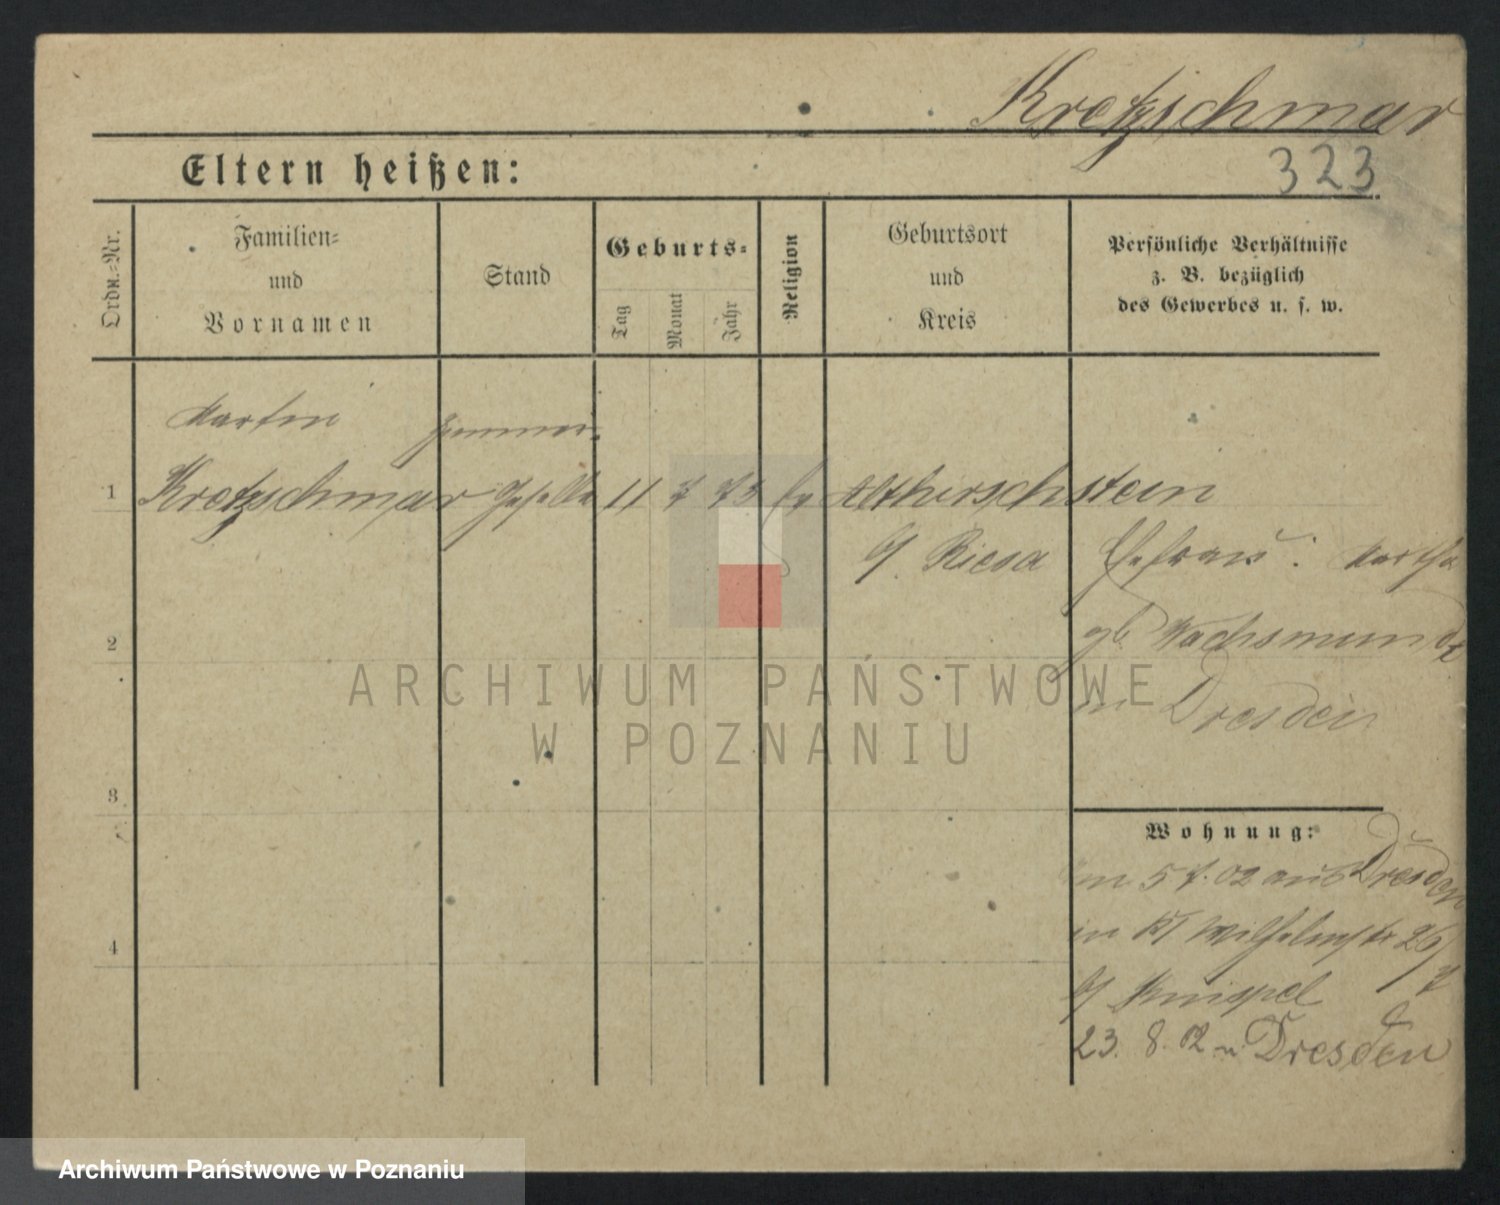 Kretzschmar
Eltern heißen:
323
Ordn.=Nr.
Familien=
und
Vornamen
Stand
Geburts=
Tag
Monat
Jahr
Religion
Geburtsort
und
Kreis
Persönliche Verhältnisse
z. B. bezüglich
des Gewerbes u. s. w.
Martin Zimmer-
1 Kretzschmar Geselle 11 7 73 ev Althirschstein
b/ Riesa Ehefrau: Martha
2 gb. Wachsmundt
in Dresden
3
Wohnung:
5 7. 02 aus Dresden
4 in Wilhelmstr 26/
b/ Knispel
23. 8. 02 n Dresden
ARCHIWUM PAŃSTWOWE
W POZNANIU
Archiwum Państwowe w Poznaniu